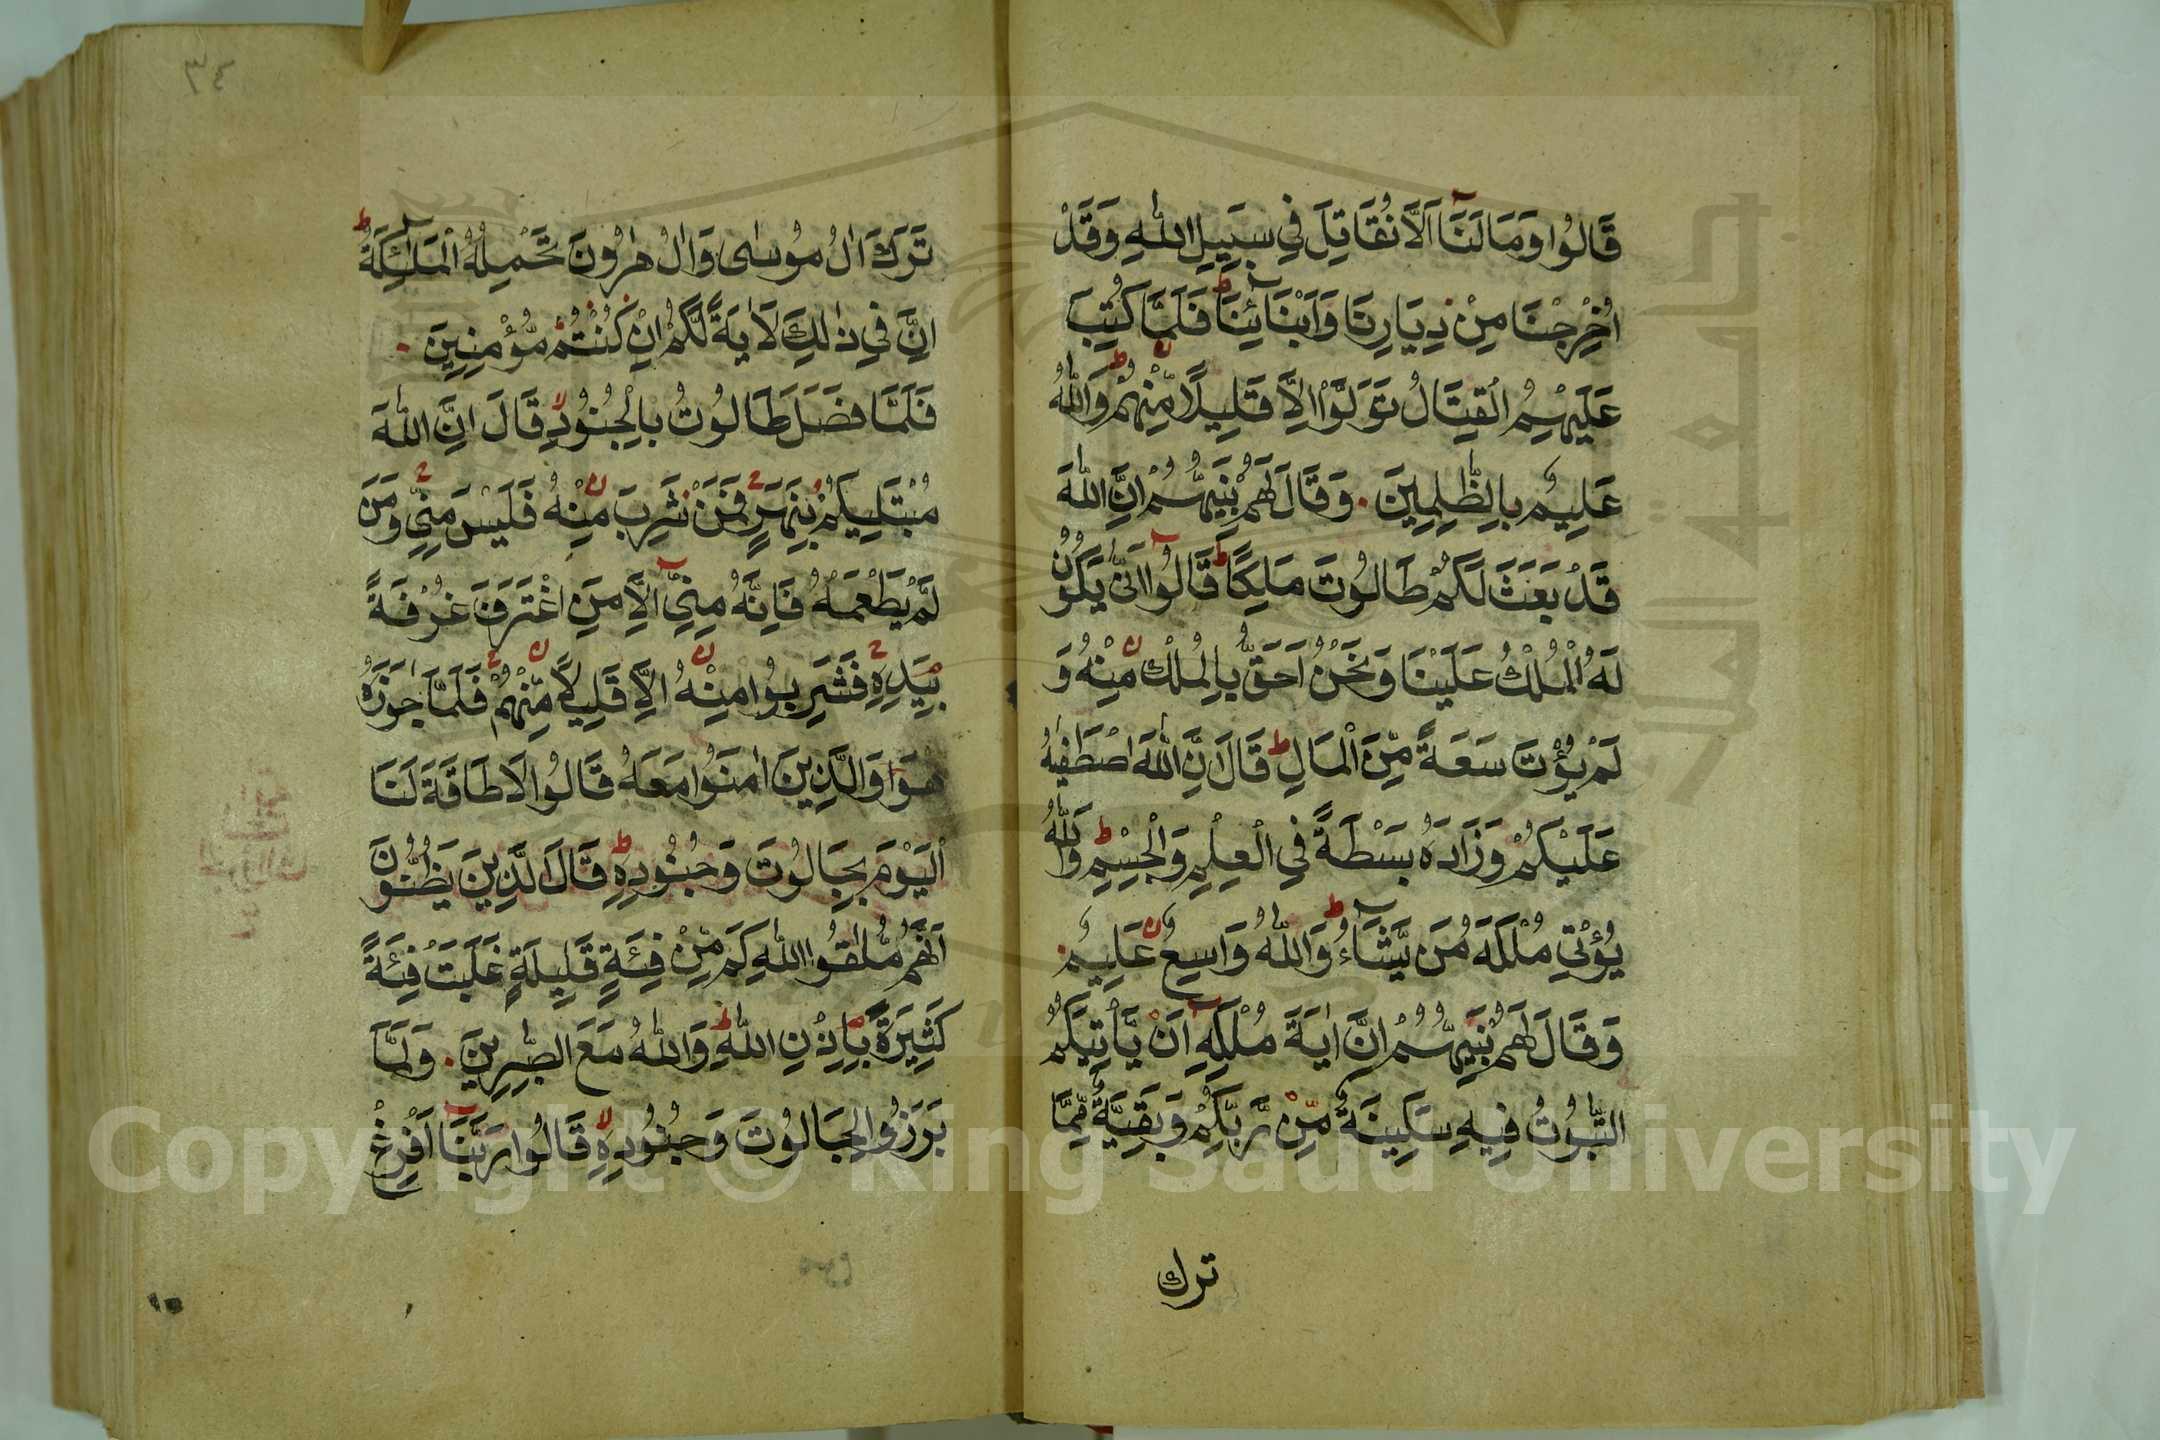 قَالُوا وَمَا لَنَا اَلَّا نُقَاتِلَ فِي سَبِيلِ اللّٰهِ وَقَدْ
اُخْرِجْنَا مِنْ دِيَارِنَا وَاَبْنَائِنَا ط فَلَمَّا كُتِبَ
عَلَيْهِمُ الْقِتَالُ تَوَلَّوْا اِلَّا قَلِيلًا مِّنْهُمْ ط وَاللّٰهُ
عَلِيمٌ بِالظّٰلِمِينَ . وَقَالَ لَهُمْ نَبِيُّهُمْ اِنَّ اللّٰهَ
قَدْ بَعَثَ لَكُمْ طَالُوتَ مَلِكًا ط قَالُوا اَنّٰى يَكُونُ
لَهُ الْمُلْكُ عَلَيْنَا وَنَحْنُ اَحَقُّ بِالْمُلْكِ مِنْهُ وَ
لَمْ يُؤْتَ سَعَةً مِّنَ الْمَالِ ط قَالَ اِنَّ اللّٰهَ اصْطَفٰيهُ
عَلَيْكُمْ وَزَادَهُ بَسْطَةً فِي الْعِلْمِ وَالْجِسْمِ ط وَاللّٰهُ
يُؤْتِي مُلْكَهُ مَنْ يَّشَاءُ ط وَاللّٰهُ وَاسِعٌ عَلِيمٌ .
وَقَالَ لَهُمْ نَبِيُّهُمْ اِنَّ اٰيَةَ مُلْكِهِ اَنْ يَّأْتِيَكُمُ
التَّابُوتُ فِيهِ سَكِينَةٌ مِّنْ رَّبِّكُمْ وَبَقِيَّةٌ مِّمَّا
ترك
٣٤
تَرَكَ اٰلُ مُوسٰى وَاٰلُ هٰرُونَ تَحْمِلُهُ الْمَلٰئِكَةُ ط
اِنَّ فِي ذٰلِكَ لَاٰيَةً لَّكُمْ اِنْ كُنْتُمْ مُّؤْمِنِينَ .
فَلَمَّا فَصَلَ طَالُوتُ بِالْجُنُودِ لا قَالَ اِنَّ اللّٰهَ
مُبْتَلِيكُمْ بِنَهَرٍ فَمَنْ شَرِبَ مِنْهُ فَلَيْسَ مِنِّي وَمَنْ
لَّمْ يَطْعَمْهُ فَاِنَّهُ مِنِّي اِلَّا مَنِ اغْتَرَفَ غُرْفَةً
بِيَدِهِ فَشَرِبُوا مِنْهُ اِلَّا قَلِيلًا مِّنْهُمْ فَلَمَّا جٰوَزَهُ
هُوَ وَالَّذِينَ اٰمَنُوا مَعَهُ قَالُوا لَا طَاقَةَ لَنَا
الْيَوْمَ بِجَالُوتَ وَجُنُودِهِ ط قَالَ الَّذِينَ يَظُنُّونَ
اَنَّهُمْ مُّلٰقُوا اللّٰهِ كَمْ مِّنْ فِئَةٍ قَلِيلَةٍ غَلَبَتْ فِئَةً
كَثِيرَةً بِاِذْنِ اللّٰهِ ط وَاللّٰهُ مَعَ الصّٰبِرِينَ . وَلَمَّا
بَرَزُوا لِجَالُوتَ وَجُنُودِهِ لا قَالُوا رَبَّنَا اَفْرِغْ
Copyright © King Saud University